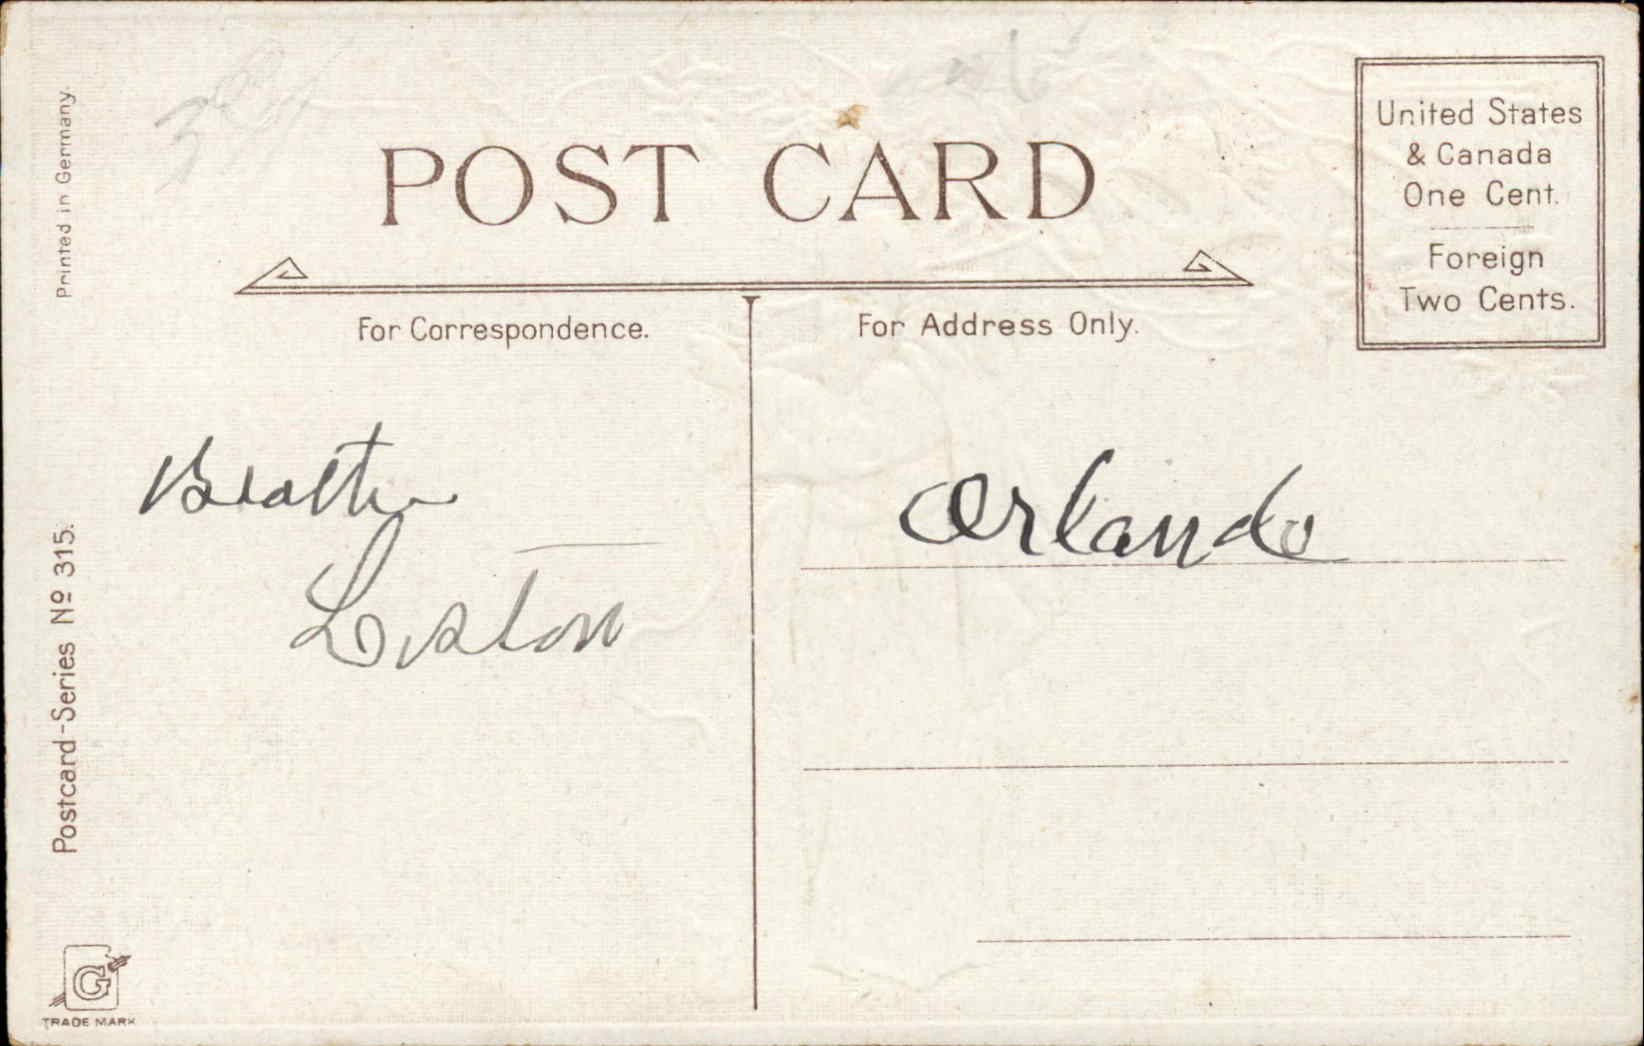 POST CARD
United States
& Canada
One Cent.
Foreign
Two Cents.
For Correspondence.
For Address Only.
Printed in Germany.
Postcard-Series Nº 315.
Brother
Liston
Orlando
G
TRADE MARK